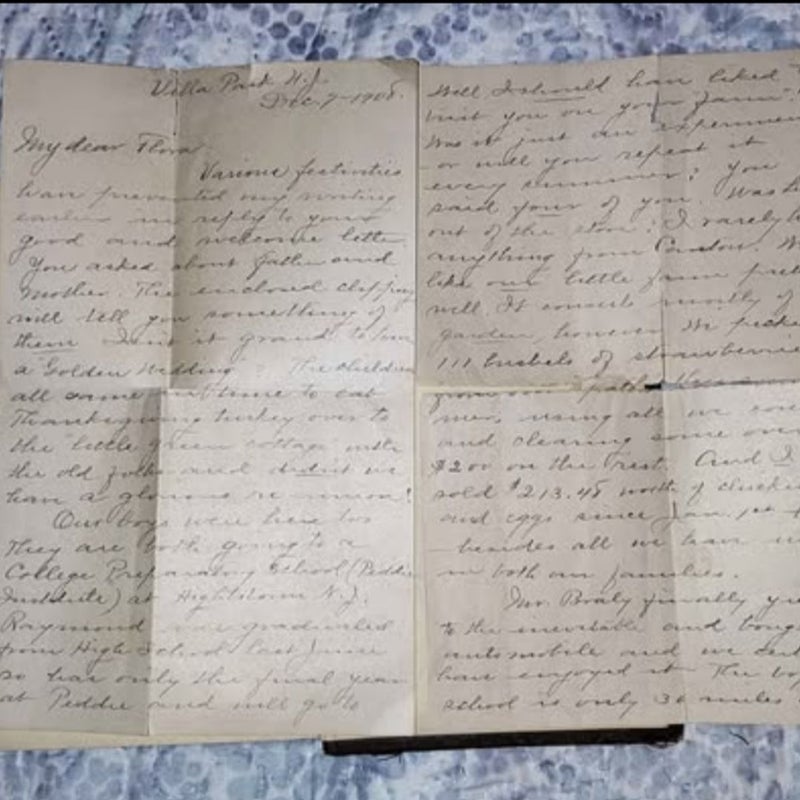 Villa Park N.J.
Dec. 7-1908.
My dear Flora
Various festivities
have prevented my writing
earlier in reply to your
good and welcome letter.
You asked about father and
Mother. The enclosed clipping
will tell you something of
them. Isn't it grand to have
a "Golden Wedding"? The children
all came home to eat
Thanksgiving turkey over to
the "little green cottage" with
the old folks and didn't we
have a glorious reunion!
Our boys were here too
They are both going to a
College Preparatory School (Peddie
Institute) at Hightstown N.J.
Raymond was graduated
from High School last June
so has only the final year
at Peddie and will go to
Well I should have liked
visit you on your "farm".
Was it just an experiment
or will you repeat it
every summer? You
said four of you. Was
out of the store? I rarely
anything from Canton. We
like our little farm
well. It consists mostly of
garden, however we picked
111 bushels of strawberries
from our patch this
mer, using all we
and clearing some over
$200 on the rest. And I
sold $213.48 worth of chickens
and eggs since Jan. 1st
besides all we have
in both our families.
Mr. Braly finally
to the inevitable and bought
automobile and we
have enjoyed it. The boys
school is only 30 miles